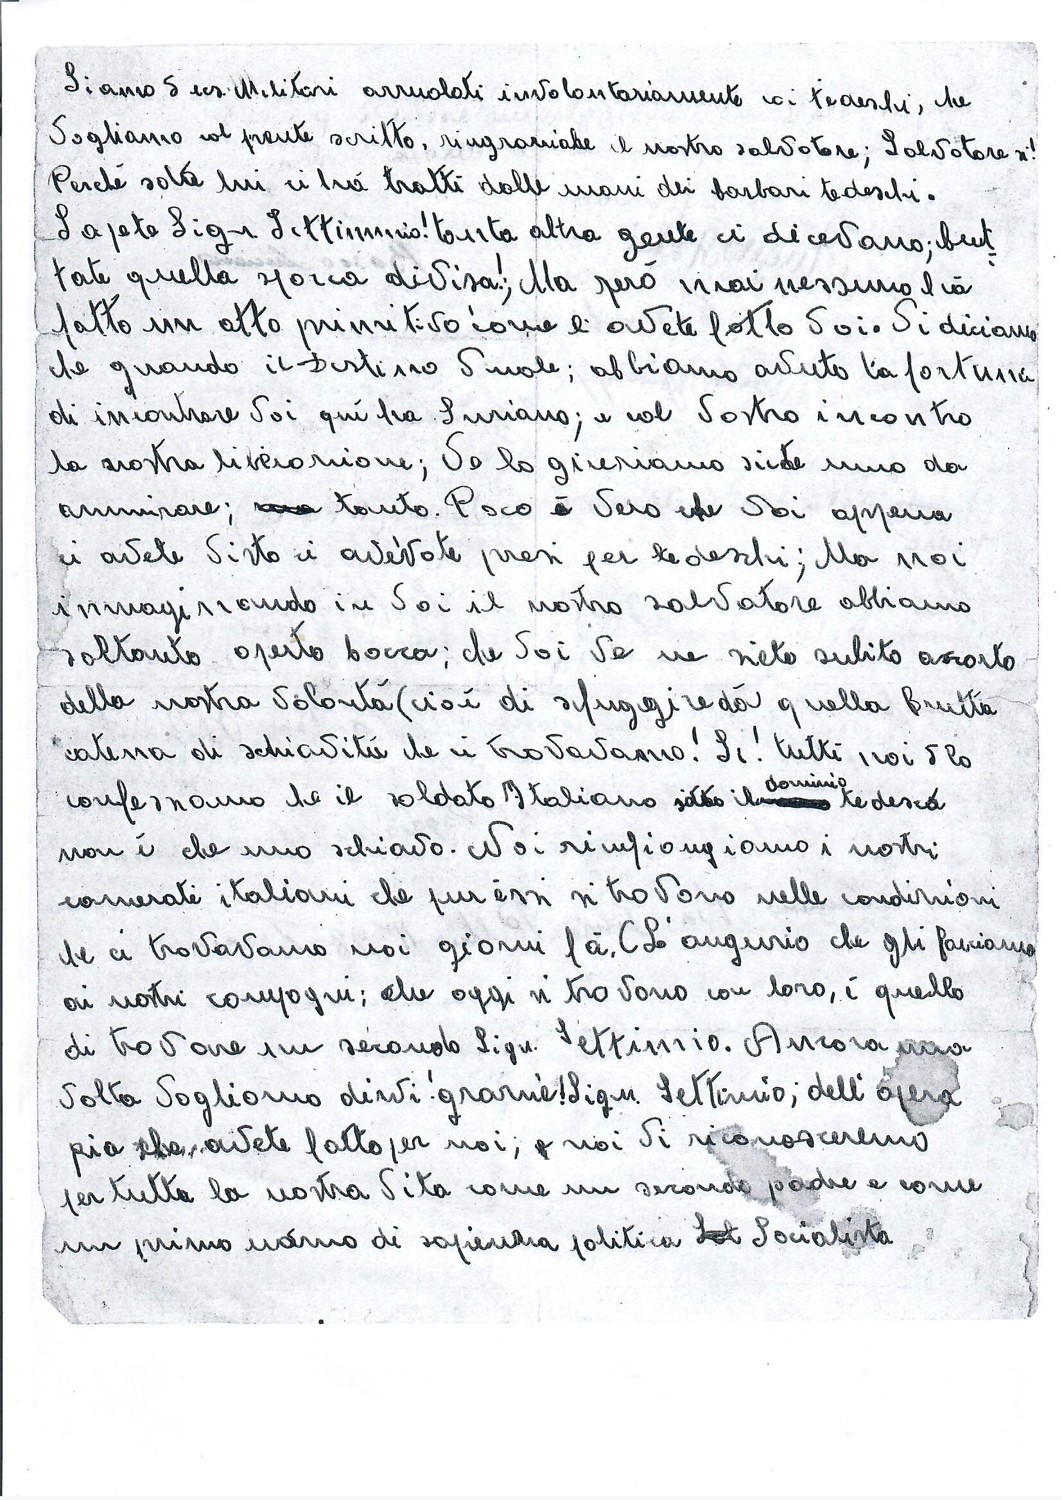 Siamo 5 ex. Militari arruolati involontariamente coi tedeschi, che
vogliamo col prente scritto, ringraniake il nostro salvatore; Salvatore si!
Perché solá lui ci há tratti dalle mani dei barbari tedeschi.
Sapete Sign Settimmio! tanta altra gente ci dicevano; but-
tate quella sporca divisa!; Ma peró mai nessuno l'há
fatto un atto primitivo come li avete fatto voi. Vi diciamo
che quando il Destino vuole; abbiamo avuto la fortuna
di incontrare voi quí ha Suriano; e col vostro incontro
la nostra liberanione; ve lo giuriamo siete uno da
ammirare; tanto. Poco é vero che voi appena
ci avete visto ci avévate presi per tedeschi; Ma noi
immaginando in voi il nostro salvatore abbiamo
soltanto aperto bocca; che voi ve ne siete subito accorto
della nostra volontá (cioé di sfuggire dá quella brutta
catena di schiavitú che ci trovavamo! Si! tutti noi 5 lo
confessiamo che il soldato Italiano sotto il dominio tedesco
non é che uno schiavo. Noi rimpiangiamo i nostri
camerati italiani che pur éssi si trovono nelle condinioni
che ci trovavamo noi giorni fá. (L'augurio che gli facciamo
ai nostri compagni; che oggi si trovono con loro, é quello
di trovare un secondo Sign. Settimio. Ancora una
volta vogliamo dirvi 'granie! Sign. Settimio; dell' ópera
pia che avete fatto per noi; e noi vi riconosceremo
per tutta la nostra vita come un secondo padre e come
un primo uómo di sapienza politica Socialista